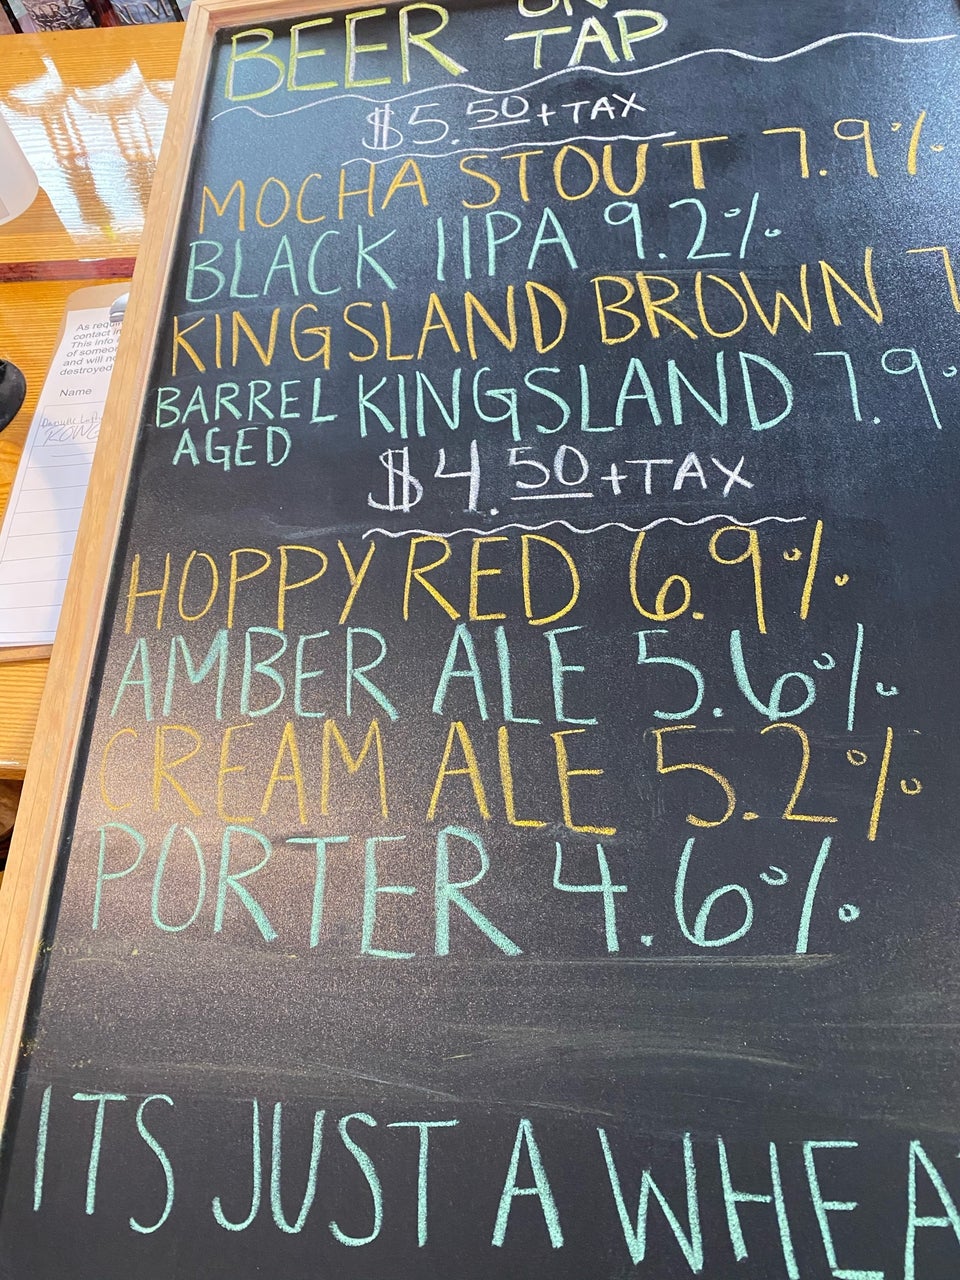 BEER ON TAP
$5.50 + TAX
MOCHA STOUT 7.9%
BLACK IIPA 9.2%
KINGSLAND BROWN 7
BARREL AGED KINGSLAND 7.9
$4.50 + TAX
HOPPY RED 6.9%
AMBER ALE 5.6%
CREAM ALE 5.2%
PORTER 4.6%
ITS JUST A WHEA
As requi
contact in
This info
of someo
and will no
destroyed
Name